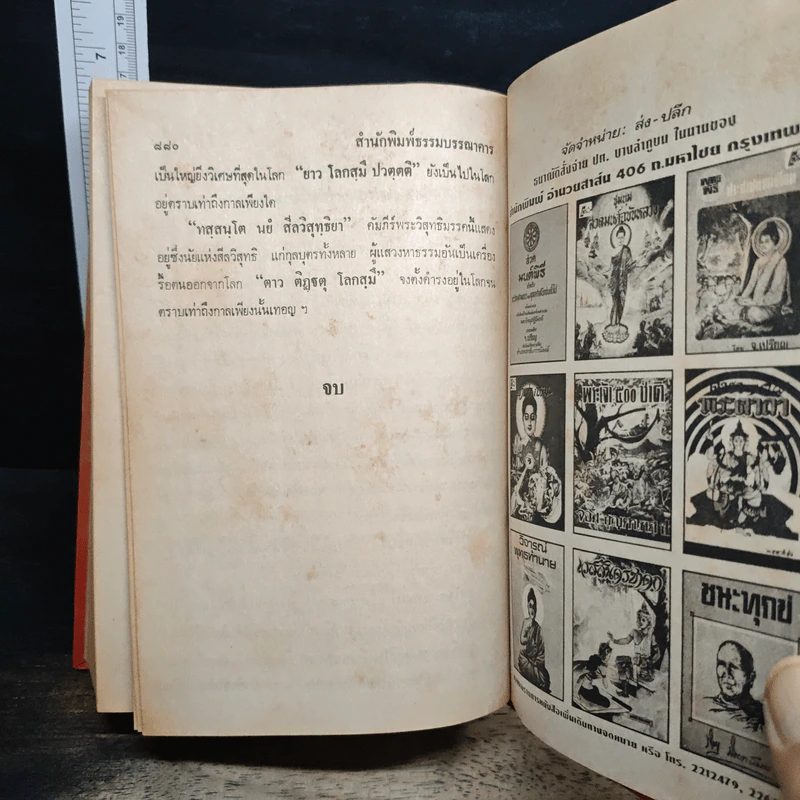 ๘๘๐ สำนักพิมพ์ธรรมบรรณาคาร
เป็นใหญ่ยิ่งวิเศษที่สุดในโลก “ยาว โลกสฺมึ ปวตฺตติ” ยังเป็นไปในโลก
อยู่ตราบเท่าถึงกาลเพียงใด
“ทสฺสนฺโต นยํ สีลวิสุทฺธิยา” คัมภีร์พระวิสุทธิมรรคนี้แสดง
อยู่ซึ่งนัยแห่งสีลวิสุทธิ แก่กุลบุตรทั้งหลาย ผู้แสวงหาธรรมอันเป็นเครื่อง
รื้อตนออกจากโลก “ตาว ติฏฺฐตุ โลกสฺมึ” จงตั้งดำรงอยู่ในโลกจน
ตราบเท่าถึงกาลเพียงนั้นเทอญ ฯ
จบ
จัดจำหน่าย: ส่ง-ปลีก
ธนาณัติสั่งจ่าย ปท. บางลำภูบน ในนามของ
อำนวยสาส์น 406 ถ.มหาไชย กรุงเทพ
มนต์พิธี
โดย จ.เปรียญ
พระเจ้า ๕๐๐ ชาติ
พระคาถา
วิจารณ์
พุทธทำนาย
เวสสันดรชาดก
ชนะทุกข์
หรือ โทร. 2212479,